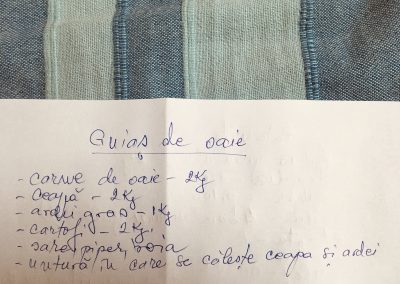 Gulaș de oaie
- carne de oaie - 2 Kg
- ceapă - 2 Kg
- ardei gras - 1 Kg
- cartofi - 2 Kg.
- sare, piper, boia
- untură în care se călește ceapa și ardei